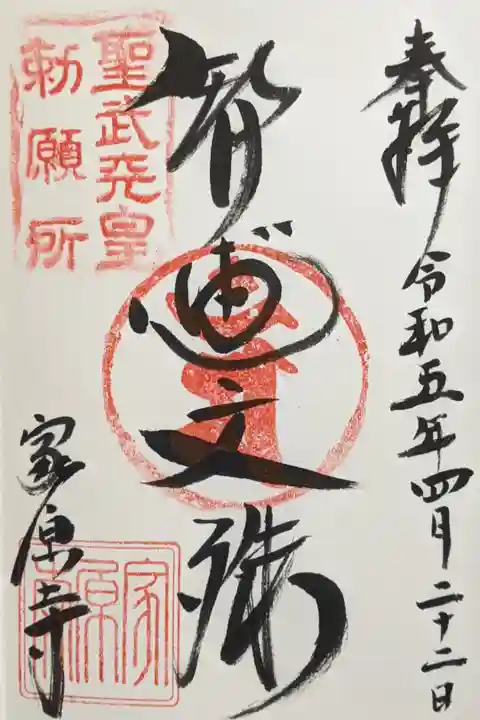 奉拝
令和五年四月二十二日
智恵文殊
家原寺
聖武天皇
勅願所
家原寺